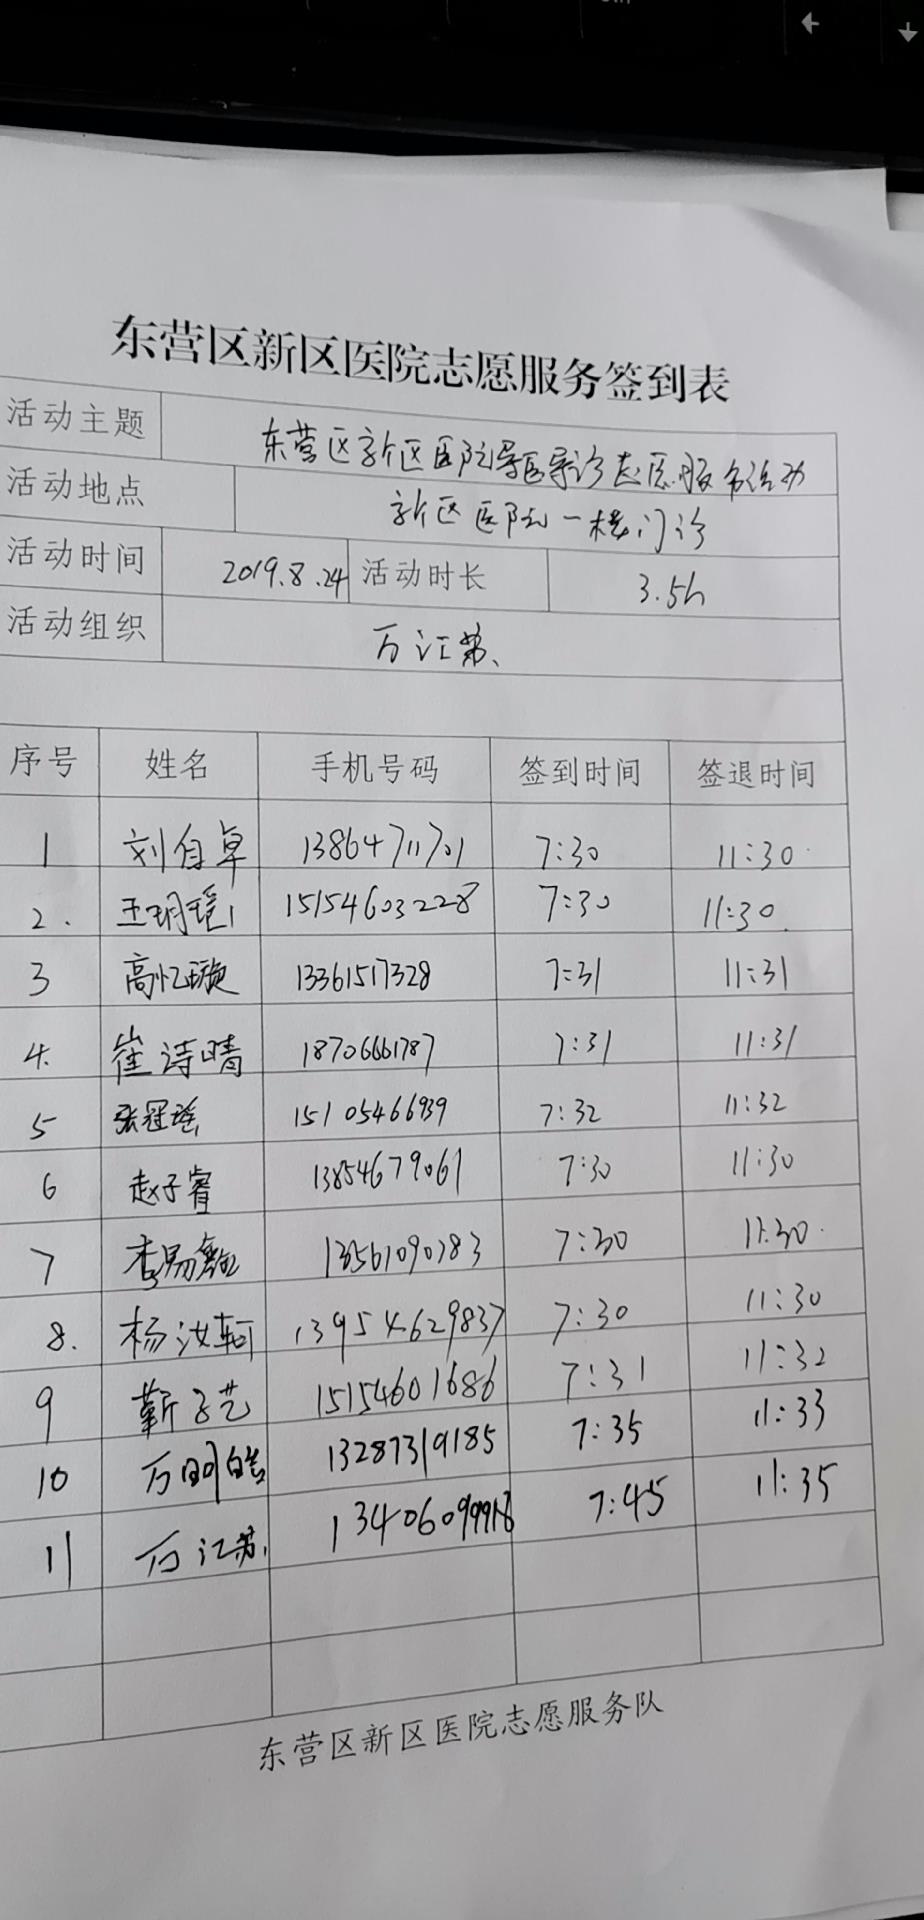 东营区新区医院志愿服务签到表
活动主题 东营区新区医院导医导诊志愿服务活动
活动地点 新区医院一楼门诊
活动时间 2019.8.24 活动时长 3.5h
活动组织 万江苏
序号 姓名 手机号码 签到时间 签退时间
1 刘自卓 13864711701 7:30 11:30
2. 王玥瑄 15154603228 7:30 11:30
3 高忆璇 13361517328 7:31 11:31
4. 崔诗晴 18706661787 7:31 11:31
5 张冠瑶 15105466939 7:32 11:32
6 赵子睿 13854679061 7:30 11:30
7 李易 13561090783 7:30 11:30
8. 杨汝轲 13954629837 7:30 11:30
9 靳子艺 15154601686 7:31 11:32
10 万明皓 13287319185 7:35 11:33
11 万江苏 7:45 11:35
东营区新区医院志愿服务队